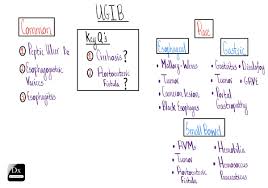 UGIB
Common
① Peptic Ulcer Dz
② Esophagogastric Varices
③ Esophagitis
Key Q's
① Cirrhosis?
② Aortoenteric Fistula?
Rare
Esophageal
• Mallory-Weiss
• Tumor
• Cameron lesion
• Black Esophagus
Gastric
• Gastritis
• Dieulafoy
• Tumor
• GAVE
• Portal Gastropathy
Small Bowel
• AVMs
• Tumor
• Aortoenteric Fistula
• Hemobilia
• Hemosuccus Pancreaticus
Dx